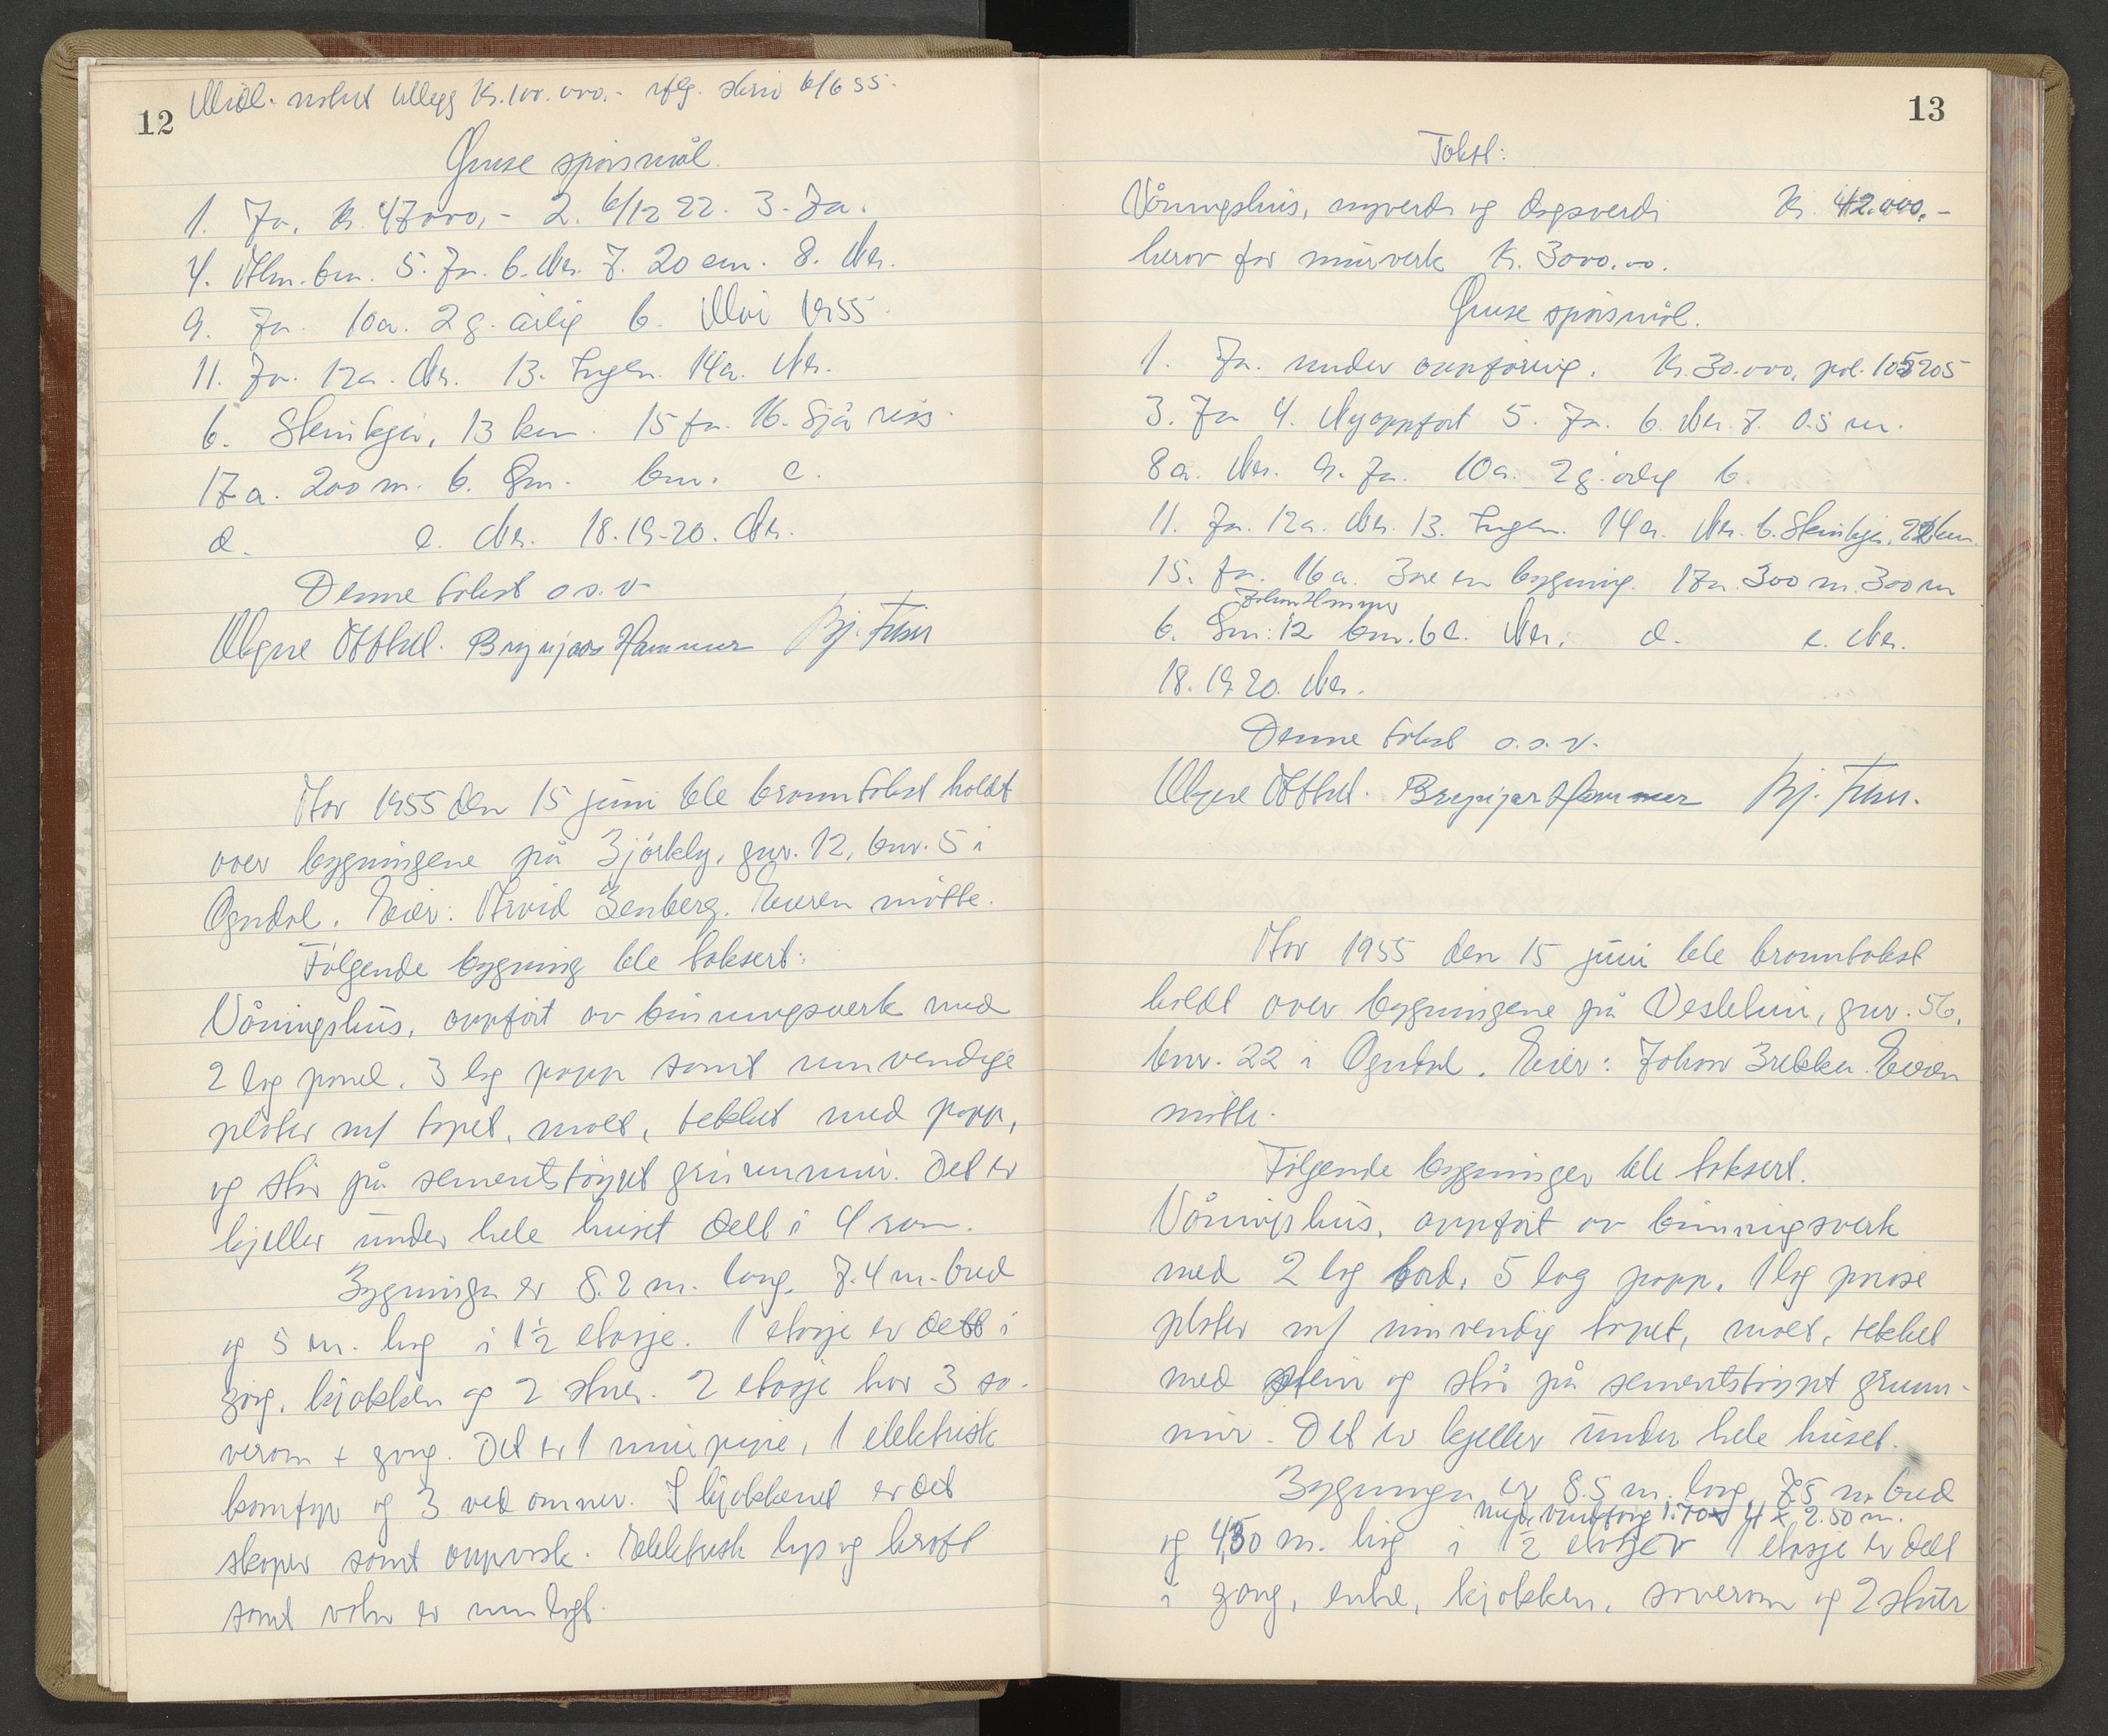 12
Midl. notert tillegg Kr. 100.000.- iflg. skriv 6/6 55.
Gruse spörsmål.
1. Ja, kr. 47000,- 2. 6/12 22. 3. Ja.
4. Alm. bru. 5. Ja. 6. Nei. 7. 20 cm. 8. Nei.
9. Ja. 10a. 2 g. årlig b. Mai 1955.
11. Ja. 12a. Nei. 13. Ingen. 14a. Nei.
b. Steinkjer, 13 km. 15 Ja. 16. Sjå riss.
17 a. 200 m. b. Gnr. bnr. c.
d. e. Nei. 18.19-20. Nei.
Denne takst o.s.v
Magne Brynjar Hammer Bj. Five
Aar 1955 den 15 juni ble branntakst holdt
over bygningene på Björkly, gnr. 12, bnr. 5 i
Ogndal. Eier: Arvid Benberg. Eieren mötte.
Fölgende bygning ble taksert:
Våningshus, oppfört av binningsverk med
2 lag panel, 3 lag papp samt innvendige
plater m/ tapet, malt, tekket med papp,
og står på sementstöypt grunnmur. Det er
kjeller under hele huset delt i 4 rom.
Bygninga er 8.2 m. lang, 7.4 m. bred
og 5 m. høg i 1½ etasje. 1 etasje er delt i
gang, kjøkken og 2 stuer. 2 etasje har 3 so-
verom + gang. Det er 1 murpipe, 1 elektrisk
komfyr og 3 vedomner. I kjøkkenet er det
skaper samt oppvask. Elektrisk lys og kraft
samt vatn er innlagt.
13
Takst:
Våningshus, nyverdi og dagsverdi Kr. 42.000,-
herav for murverk Kr. 3000.00.
Gruse spörsmål.
1. Ja. under oppföring. Kr. 30.000, pol. 105205
3. Ja 4. Nyoppfört 5. Ja. 6. Nei. 7. 0.5 m.
8a. Nei. 9. Ja. 10a. 2 g. årlig b.
11. Ja. 12a. Nei. 13. Ingen. 14a. Nei. b. Steinkjer, 22 km.
15. Ja. 16a. Bare en bygning. 17a. 300 m. 300 m
Johan Hammer
b. Gnr: 12 bnr. 6 c. Nei. d. e. Nei.
18. 19 20. Nei.
Denne takst o.s.v.
Magne Brynjar Hammer Bj. Five.
Aar 1955 den 15 juni ble branntakst
holdt over bygningene på Vesleheim, gnr. 56,
bnr. 22 i Ogndal. Eier: Johan Brekken. Eieren
mötte.
Fölgende bygninger ble taksert.
Våningshus, oppfört av binningsverk
med 2 lag bord, 5 lag papp, 1 lag poröse
plater m/ innvendig tapet, malt, tekket
med stein og står på sementstöypt grunn-
mur. Det er kjeller under hele huset.
Bygninga er 8.5 m. lang, 7.5 m. bred
med vindfang 1.70 x 4 x 2.50 m.
og 4,50 m. høg i 1½ etasjer 1 etasje er delt
i gang, entré, kjøkken, soverom og 2 stuer